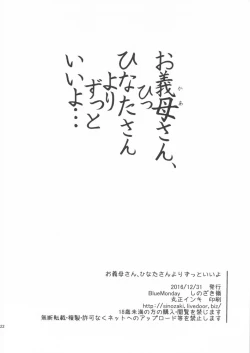 お義母さん、
かあ
ひっ
ひなたさん
より
ずっと
いいよ…
お義母さん、ひなたさんよりずっといいよ
2016/12/31　発行
BlueMonday　しのざき嶺
丸正インキ　印刷
http://sinozaki.livedoor.biz/
18歳未満の方の購入・閲覧を禁じます
無断転載・複製・許可なくネットへのアップロード等を禁止します